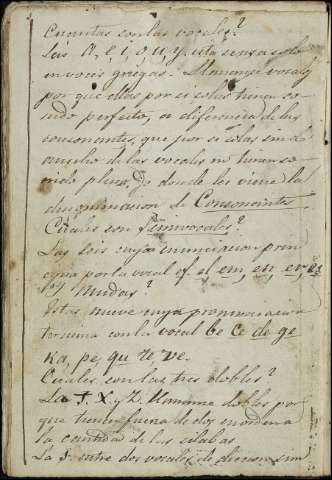 Cuantas son las vocales?
Las A, e, i, o, u, y, esta se usa solo
en voces griegas. Llamanse vocals
por que ellas por si solas tienen so-
nido perfecto, a diferencia de las
consonantes, que por si solas sin el
auxilio de las vocales no tienen so-
nido pleno, de donde les viene la
denominacion de Consonantes.
Cuales son Semivocales?
Las seis cuya enunciacion prin-
cipia por la vocal ef. el, em, en, er, es
Y Mudas?
Estas nueve cuya pronunciacion
termina con la vocal be ce de ge
ka, pe, qu te, ve.
Cuales son las tres dobles?
La J. X. y Z. Llamanse dobles por
que tienen fuerza de dos en orden a
la cantidad de las silabas
La J. entre dos vocales de diccion sim